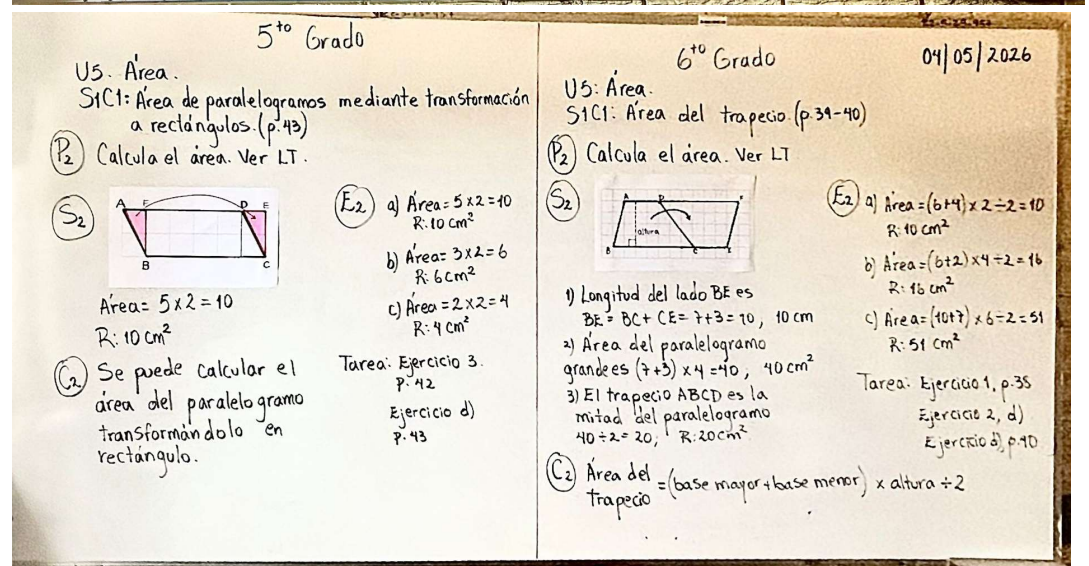 5to Grado
U5. Área.
S1C1: Área de paralelogramos mediante transformación
a rectángulos. (p.43)
P2 Calcula el área. Ver LT.
S2
A F D E
B C
Área= 5x2=10
R: 10 cm²
C2 Se puede calcular el
área del paralelogramo
transformándolo en
rectángulo.
E2 a) Área= 5x2=10
R: 10 cm²
b) Área= 3x2=6
R: 6cm²
c) Área=2x2=4
R: 4 cm²
Tarea: Ejercicio 3.
P. 42
Ejercicio d)
P. 43
6to Grado
04/05/2026
U5: Área.
S1C1: Área del trapecio (p.39-40)
P2 Calcula el área. Ver LT
S2
A D
altura
B C E
1) Longitud del lado BE es
BE= BC+ CE= 7+3=10, 10 cm
2) Área del paralelogramo
grande es (7+3) x4=40, 40 cm²
3) El trapecio ABCD es la
mitad del paralelogramo
40÷2=20; R: 20cm²
C2 Área del trapecio =(base mayor+base menor) x altura ÷2
E2 a) Área=(6+4)x2÷2=10
R: 10 cm²
b) Área=(6+2)x4÷2=16
R: 16 cm²
c) Área=(10+7)x6÷2=51
R: 51 cm²
Tarea: Ejercicio 1, p.38
Ejercicio 2, d)
Ejercicio d), p.40